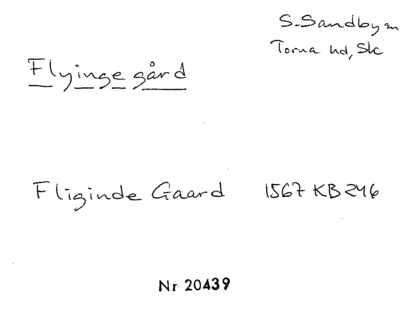 S. Sandby sn
Torna hd, Sk
Flyinge gård
Fliginde Gaard 1567 KB 246
Nr 20439